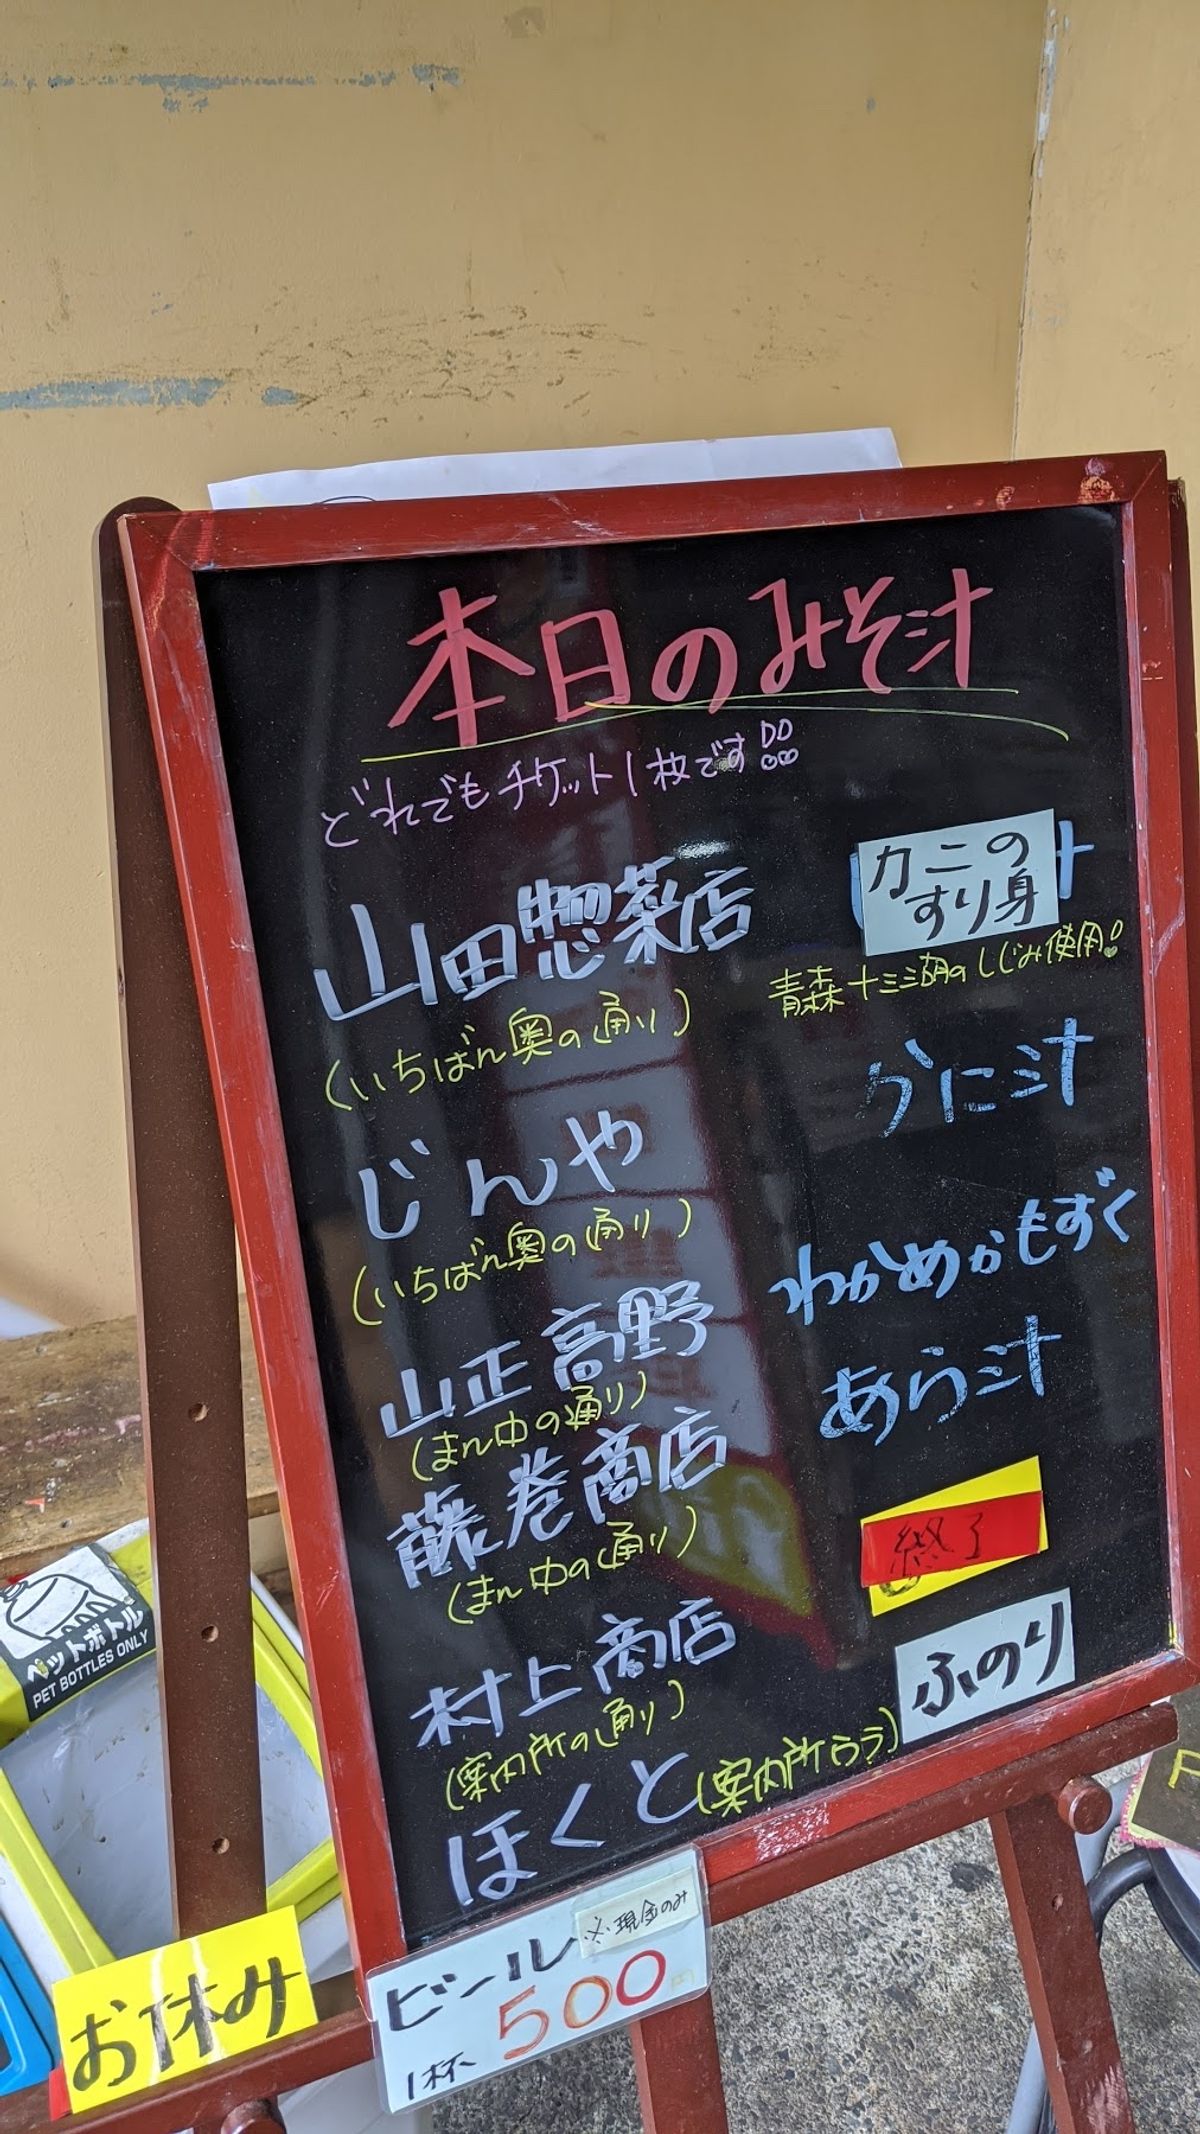 本日のみそ汁
どれでもチケット1枚です!!
山田惣菜店
カニの
すり身
汁
(いちばん奥の通り)
青森十三湖のしじみ使用!
じんや
かに汁
(いちばん奥の通り)
山正高野
わかめかもずく
(まん中の通り)
藤巻商店
あら汁
(まん中の通り)
村上商店
終了
(案内所の通り)
ほくと(案内所うラ)
ふのり
ビール ※現金のみ
1杯 500円
お休み
ペットボトル
PET BOTTLES ONLY